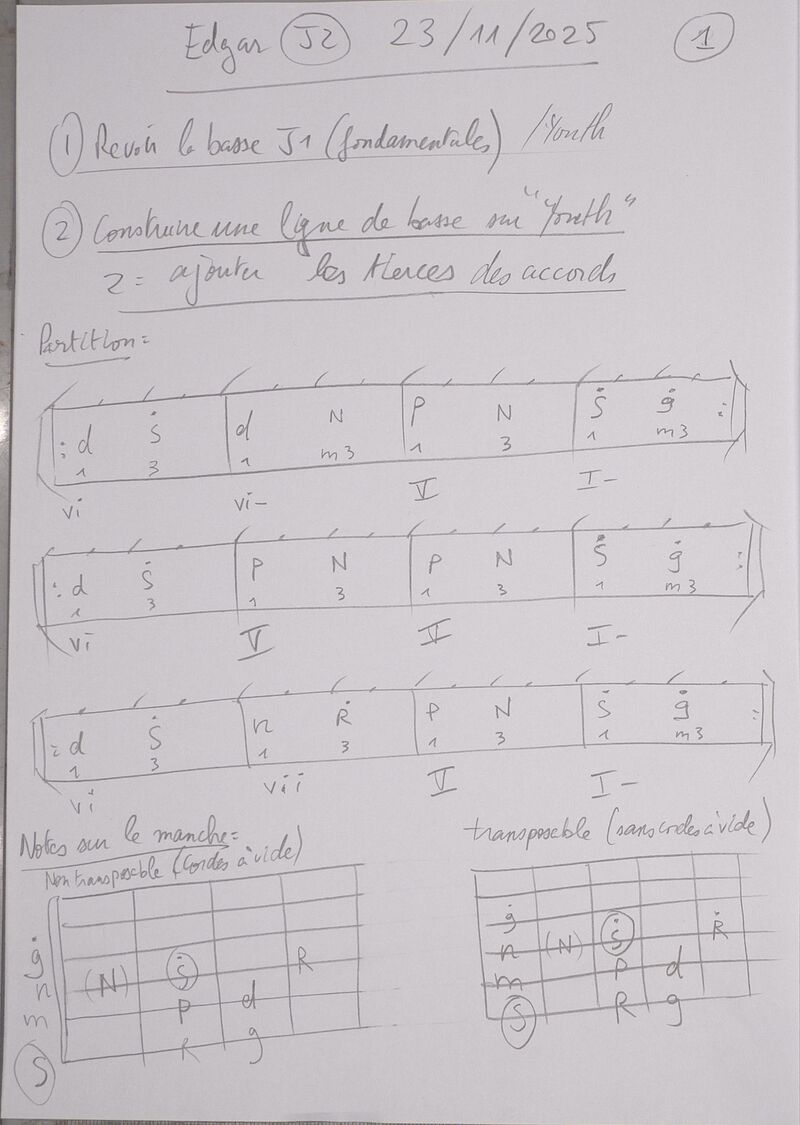 Edgar J2 23/11/2025 1
1 Revoir la basse J1 (fondamentales) /Youth
2 Construire une ligne de basse sur "Youth"
2 = ajouter les tierces des accords
Partition =
: d Ṡ d N P N Ṡ ġ :
1 3 1 m3 1 3 1 m3
vi vi- V I-
: d Ṡ P N P N Ṡ ġ :
1 3 1 3 1 3 1 m3
vi V V I-
: d Ṡ n Ṙ P N Ṡ ġ :
1 3 1 3 1 3 1 m3
vi vii V I-
Notes sur le manche =
Non transposable (cordes à vide)
ġ
n (N) Ṡ R
m P d
S R g
transposable (sans cordes à vide)
ġ
n (N) Ṡ Ṙ
m P d
S R g